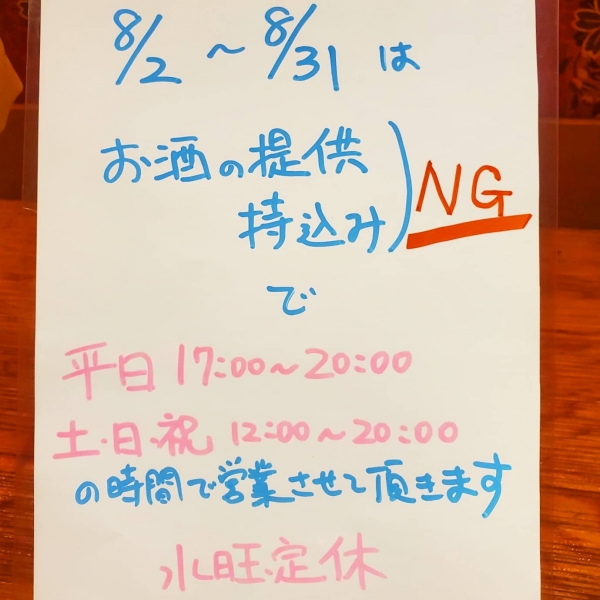 8/2 ~ 8/31 は
お酒の提供
持込み) NG
で
平日 17:00~20:00
土・日・祝 12:00~20:00
の時間で営業させて頂きます
水旺定休